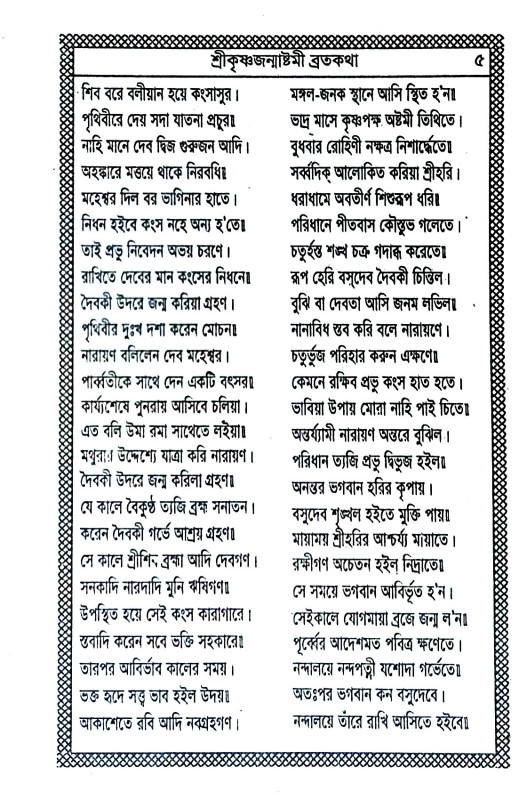 শ্রীকৃষ্ণজন্মাষ্টমী ব্রতকথা ৫
শিব বরে বলীয়ান হয়ে কংসাসুর।
পৃথিবীরে দেয় সদা যাতনা প্রচুর॥
নাহি মানে দেব দ্বিজ গুরুজন আদি।
অহঙ্কারে মত্তয়ে থাকে নিরবধি॥
মহেশ্বর দিল বর ভাগিনার হাতে।
নিধন হইবে কংস নহে অন্য হ'তে॥
তাই প্রভু নিবেদন অভয় চরণে।
রাখিতে দেবের মান কংসের নিধনে॥
দৈবকী উদরে জন্ম করিয়া গ্রহণ।
পৃথিবীর দুঃখ দশা করেন মোচন॥
নারায়ণ বলিলেন দেব মহেশ্বর।
পার্ব্বতীকে সাথে দেন একটি বৎসর॥
কার্য্যশেষে পুনরায় আসিবে চলিয়া।
এত বলি উমা রমা সাথেতে লইয়া॥
মথুরার উদ্দেশ্যে যাত্রা করি নারায়ণ।
দৈবকী উদরে জন্ম করিলা গ্রহণ॥
যে কালে বৈকুণ্ঠ ত্যজি ব্রহ্ম সনাতন।
করেন দৈবকী গর্ভে আশ্রয় গ্রহণ॥
সে কালে শ্রীশিব ব্রহ্মা আদি দেবগণ।
সনকাদি নারদাদি মুনি ঋষিগণ॥
উপস্থিত হয়ে সেই কংস কারাগারে।
স্তবাদি করেন সবে ভক্তি সহকারে॥
তারপর আবির্ভাব কালের সময়।
ভক্ত হৃদে সত্ত্ব ভাব হইল উদয়॥
আকাশেতে রবি আদি নবগ্রহগণ।
মঙ্গল-জনক স্থানে আসি স্থিত হ'ন॥
ভাদ্র মাসে কৃষ্ণপক্ষ অষ্টমী তিথিতে।
বুধবার রোহিণী নক্ষত্র নিশার্দ্ধেতে॥
সর্ব্বদিক্ আলোকিত করিয়া শ্রীহরি।
ধরাধামে অবতীর্ণ শিশুরূপ ধরি॥
পরিধানে পীতবাস কৌস্তুভ গলেতে।
চতুর্হস্ত শঙ্খ চক্র গদাব্জ করেতে॥
রূপ হেরি বসুদেব দৈবকী চিন্তিল।
বুঝি বা দেবতা আসি জনম লভিল॥
নানাবিধ স্তব করি বলে নারায়ণে।
চতুর্ভুজ পরিহার করুন এক্ষণে॥
কেমনে রক্ষিব প্রভু কংস হাত হতে।
ভাবিয়া উপায় মোরা নাহি পাই চিতে॥
অন্তর্য্যামী নারায়ণ অন্তরে বুঝিল।
পরিধান ত্যজি প্রভু দ্বিভুজ হইল॥
অনন্তর ভগবান হরির কৃপায়।
বসুদেব শৃঙ্খল হইতে মুক্তি পায়॥
মায়াময় শ্রীহরির আশ্চর্য্য মায়াতে।
রক্ষীগণ অচেতন হইল নিদ্রাতে॥
সে সময়ে ভগবান আবির্ভূত হ'ন।
সেইকালে যোগমায়া ব্রজে জন্ম ল'ন॥
পূর্ব্বের আদেশমত পবিত্র ক্ষণেতে।
নন্দালয়ে নন্দপত্নী যশোদা গর্ভেতে॥
অতঃপর ভগবান কন বসুদেবে।
নন্দালয়ে তাঁরে রাখি আসিতে হইবে॥